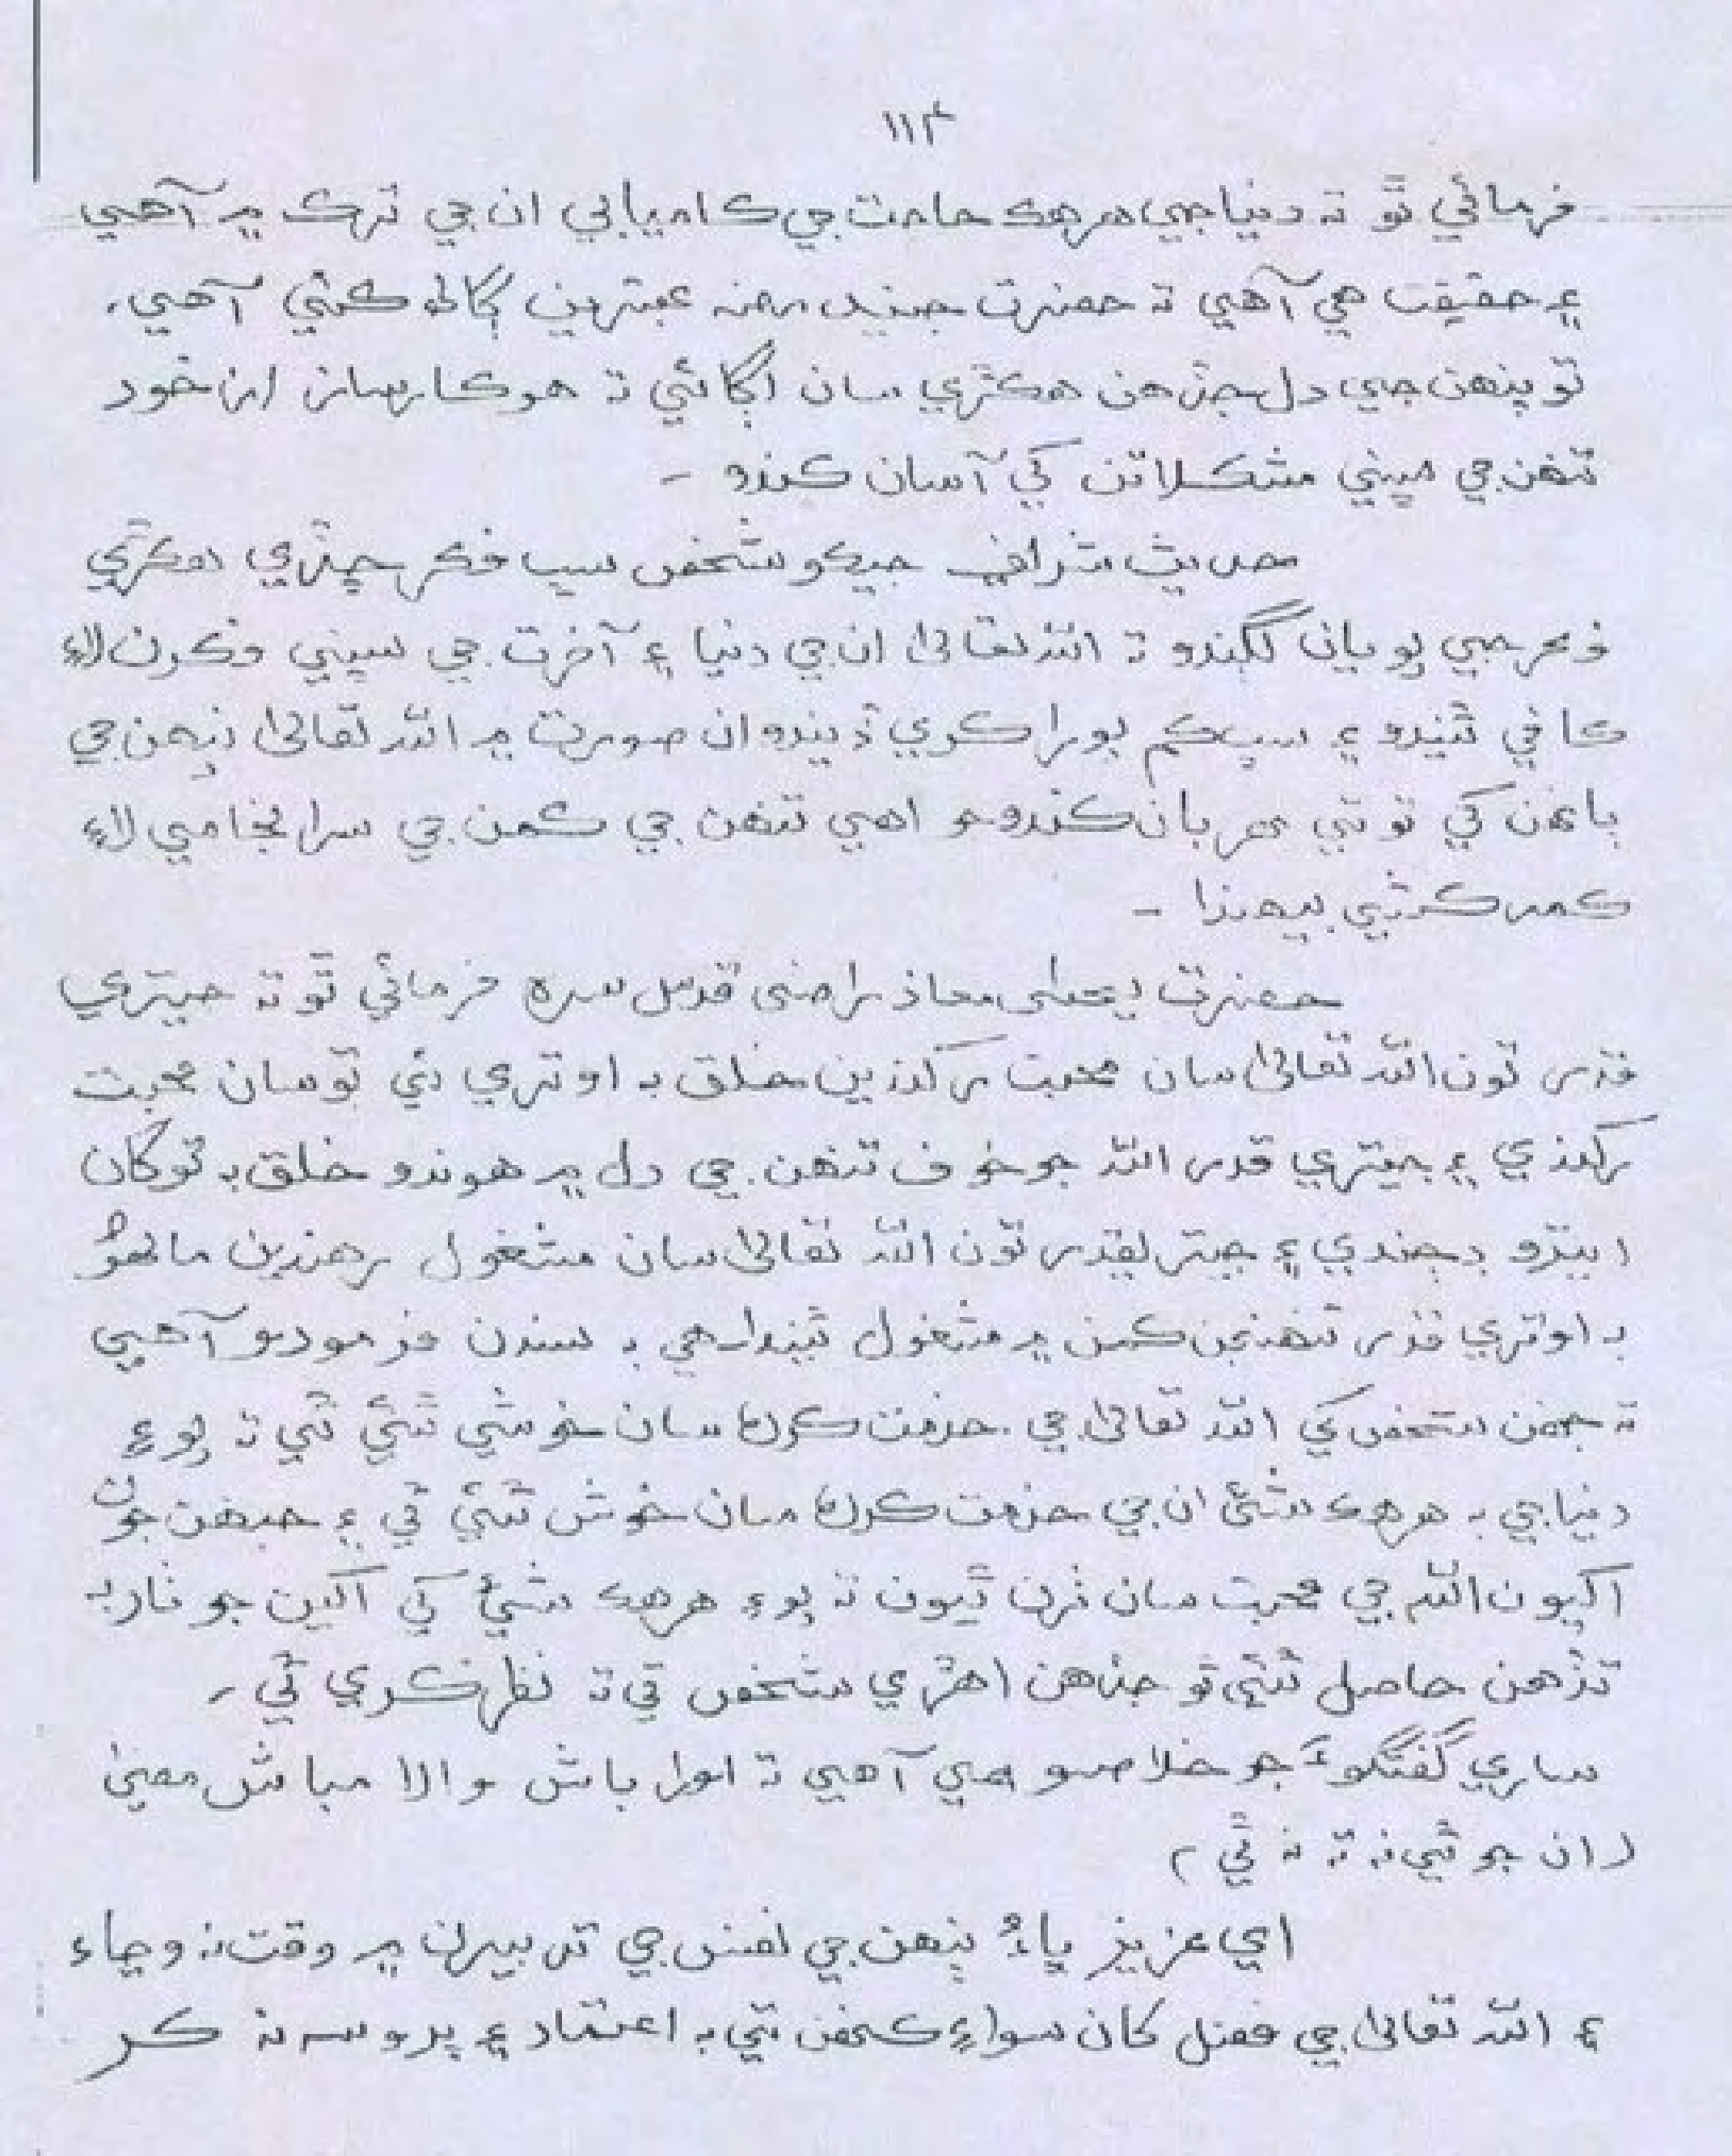 ۱۱۴
فرمائي ٿو ته دنيا جي هر هڪ حاجت جي ڪاميابي ان جي ترڪ ۾ آهي
۽ حقيقت هي آهي ته حضرت جنيد رحه عجيب ترين ڳالھ ڪئي آهي،
تو پنهن جي دل جڏهن هڪڙي سان لڳائي ته هو ڪارساز از خود
تنهن جي مڙني مشڪلاتن کي آسان ڪندو ۔
حديث شريف جيڪو شخص سڀ فڪر ڇڏي هڪڙي
فڪر جي پويان لڳندو ته الله تعاليٰ ان جي دنيا ۽ آخرت جي سڀني فڪرن لاءِ
ڪافي ٿيندو ۽ سڀ ڪم پورا ڪري ڏيندو ان صورت ۾ الله تعاليٰ پنهن جي
ٻانهن کي تو تي مهربان ڪندو هو اهي تنهن جي ڪمن جي سرانجامي لاءِ
ڪمر ڪشي بيهندا ۔
حضرت يحيٰ معاذ راضي قدس سره فرمائي ٿو ته جيتري
قدر تون الله تعاليٰ سان محبت رکندين خلق به اوتري ئي توسان محبت
رکندي ۽ جيتري قدر الله جو خوف تنهن جي دل ۾ هوندو خلق به توکان
اينرو ڊڄندي ۽ جيتر يقدر تون الله تعاليٰ سان مشغول رهندين ماڻهو
به اوتري قدر تنهنجن ڪمن ۾ مشغول ٿيندا هي به سندن فرمودو آهي
ته جنهن شخص کي الله تعاليٰ جي خدمت ڪرڻ سان خوشي ٿئي ٿي ته پوءِ
دنيا جي به هر هڪ شئي ان جي خدمت ڪرڻ سان خوش ٿئي ٿي ۽ جنهن جون
اکيون الله جي محبت سان ٺرن ٿيون ته پوءِ هر هڪ شيءِ کي اکين جو ٺار به
تڏهن حاصل ٿئي ٿو جڏهن اهڙي شخص تي ته نظر ڪري ٿي ،
ساري گفتگوءَ جو خلاصو هي آهي ته اورا باش والا مباش معنيٰ
( ان جو ٿي نه ته نه ٿي )
اي عزيز ڀاءُ پنهن جي نفس جي تدبيرن ۾ وقت نه وڃاءِ
۽ الله تعاليٰ جي فضل کان سواءِ ڪنهن تي به اعتماد ۽ ڀروسه نه ڪر